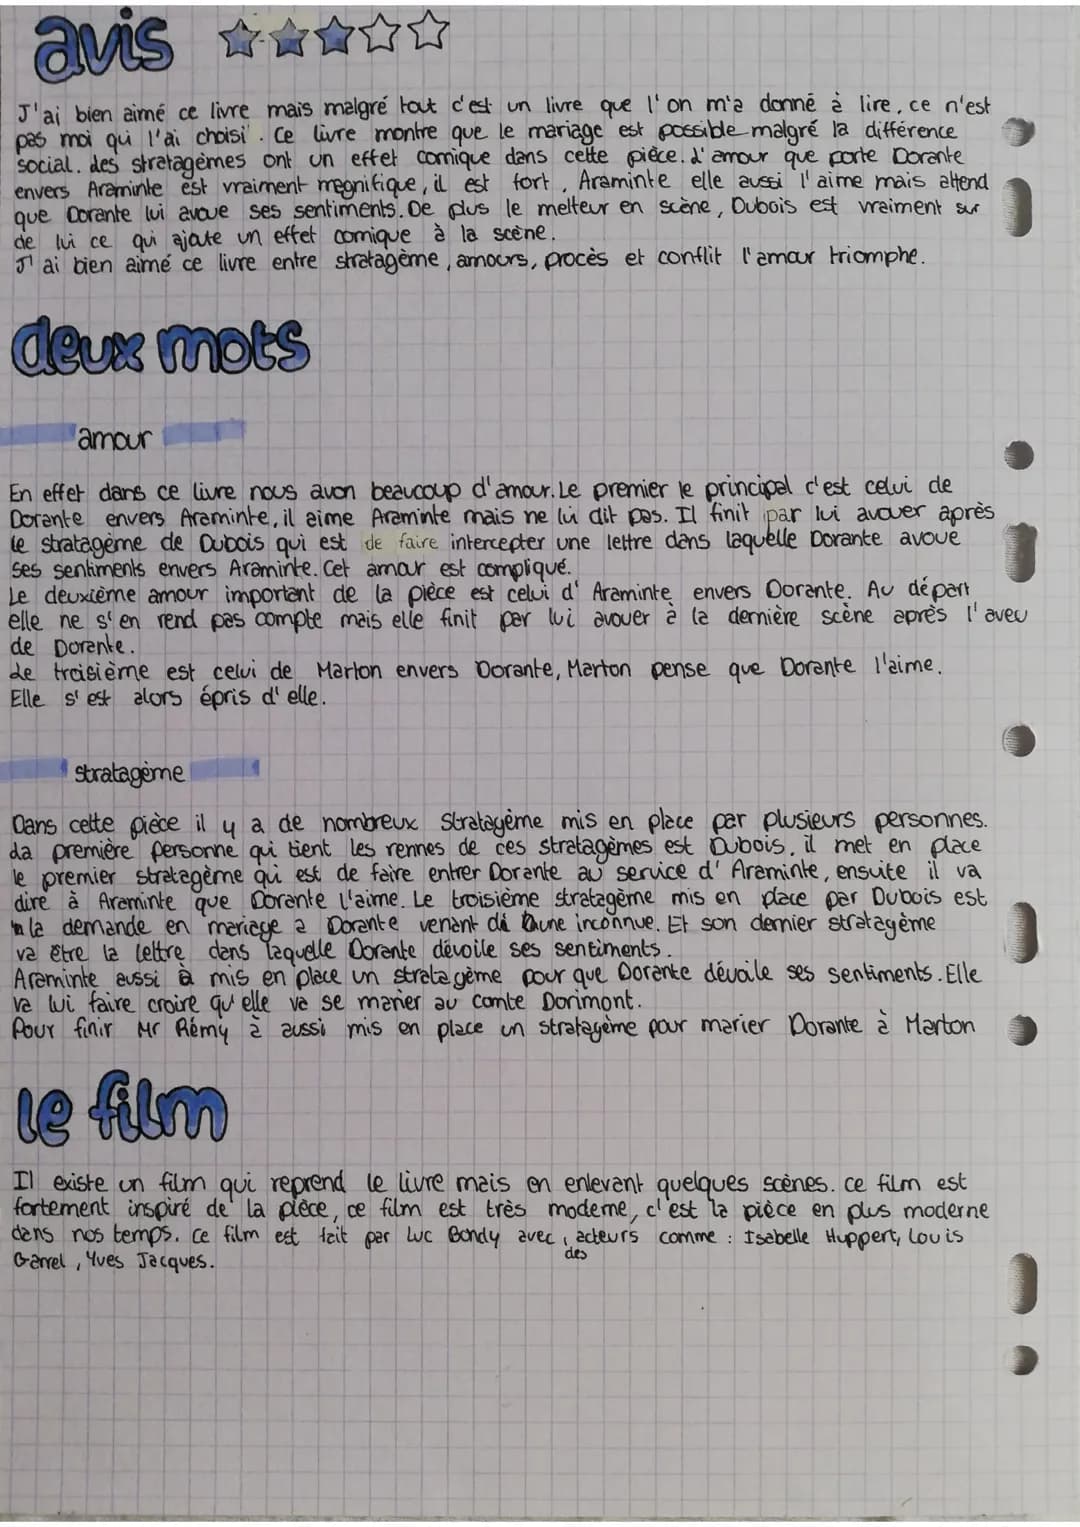 avis
J'ai bien aimé ce livre mais malgré tout c'est un livre que l'on m'a donné à lire, ce n'est
pas moi qui l'ai choisi. Ce livre montre que le mariage est possible malgré la différence
social. Les stratagèmes ont un effet comique dans cette pièce. L'amour que porte Dorante
envers Araminte est vraiment magnifique, il est fort, Araminte elle aussi l'aime mais attend
que Dorante lui avoue ses sentiments. De plus le metteur en scène, Dubois est vraiment sur
de lui ce qui ajoute un effet comique à la scène.
J'ai bien aimé ce livre entre stratagème, amours, procès et conflit l'amour triomphe.
deux mots
amour
En effet dans ce livre nous avon beaucoup d'amour. Le premier le principal c'est celui de
Dorante envers Araminte, il aime Araminte mais ne lui dit pas. Il finit par lui avouer après
le stratagème de Dubois qui est de faire intercepter une lettre dans laquelle Dorante avoue
ses sentiments envers Araminte. Cet amour est compliqué.
Le deuxième amour important de la pièce est celui d'Araminte envers Dorante. Au départ
elle ne s'en rend pas compte mais elle finit par lui avouer à la dernière scène après l'aveu
de Dorante.
Le troisième est celui de Marton envers Dorante, Marton pense que Dorante l'aime.
Elle s'est alors épris d'elle.
stratagème
Dans cette pièce il y a de nombreux stratagème mis en place par plusieurs personnes.
La première personne qui tient les rennes de ces stratagèmes est Dubois, il met en place
le premier stratagème qui est de faire entrer Dorante au service d'Araminte, ensuite il va
dire à Araminte que Dorante l'aime. Le troisième stratagème mis en place par Dubois est
la demande en mariage a Dorante venant d'une inconnue. Et son dernier stratagème
va être la lettre dans laquelle Dorante dévoile ses sentiments.
Araminte aussi à mis en place un stratagème pour que Dorante dévoile ses sentiments. Elle
va lui faire croire qu'elle va se marier au comte Dorimont.
Pour finir Mr Rémy à aussi mis en place un stratagème pour marier Dorante à Marton
le film
Il existe un film qui reprend le livre mais en enlevant quelques scènes. ce film est
fortement inspiré de la pièce, ce film est très moderne, c'est la pièce en plus moderne
dans nos temps. Ce film est fait par Luc Bondy avec des acteurs comme : Isabelle Huppert, Louis
Garrel, Yves Jacques.